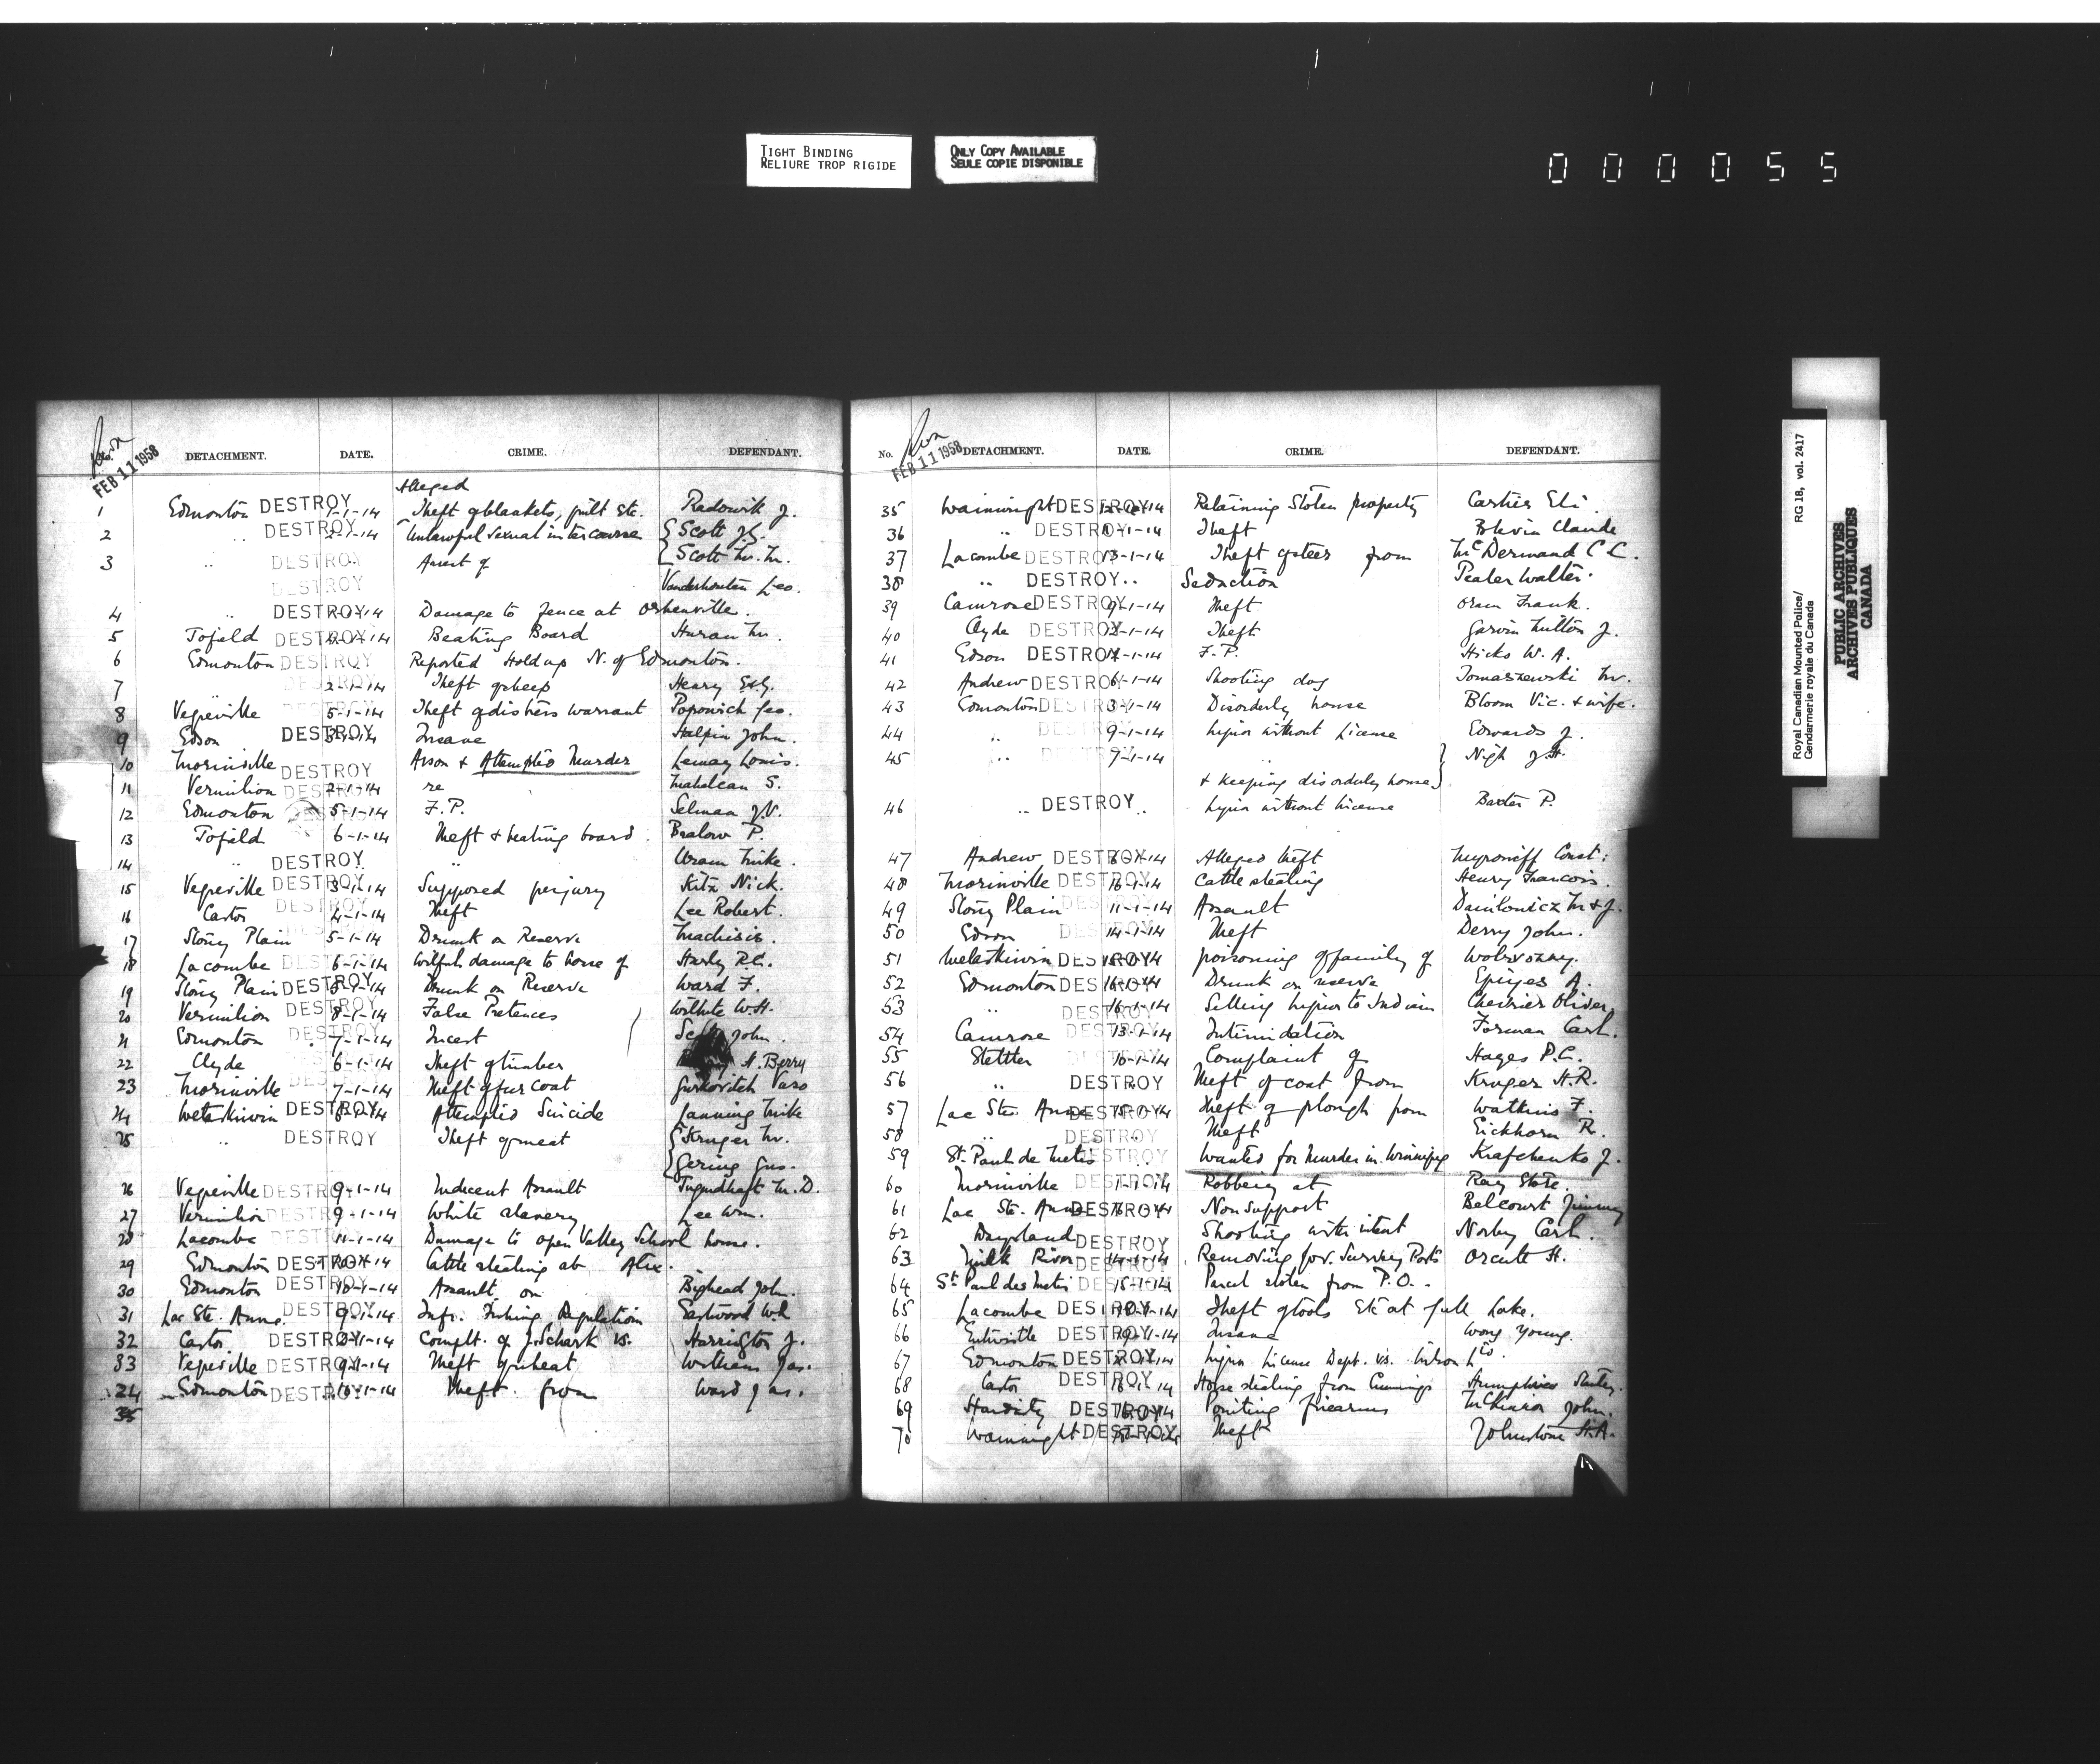 TIGHT BINDING
RELIURE TROP RIGIDE
ONLY COPY AVAILABLE
SEULE COPIE DISPONIBLE
000055
Royal Canadian Mounted Police/
Gendarmerie royale du Canada
RG 18, vol. 2417
PUBLIC ARCHIVES
ARCHIVES PUBLIQUES
CANADA
FEB 11 1958
DETACHMENT. DATE. CRIME. DEFENDANT.
Alleged
1 Edmonton DESTROY 1-1-14 Theft of blankets, quilt etc. Radowik J.
2 " DESTROY 2-1-14 Unlawful Sexual intercourse Scott J.G.
3 " DESTROY Arrest of Scott M. M.
DESTROY Vanderhouten Leo.
4 " DESTROY Damage to fence at
5 Tofield DESTROY Beating Board Huran M.
6 Edmonton DESTROY Reported Hold up N. of Edmonton.
7 DESTROY 2-1-14 Theft of sheep Henry
8 Vegreville DESTROY 5-1-14 Theft of distress warrant Popowich Geo.
9 Edson DESTROY Insane Halpin John.
10 Morinville DESTROY Arson & Attempted Murder Lemay Louis.
11 Vermilion DESTROY 2-1-14 re S.
12 Edmonton 5-1-14 F.P. Selman J.V.
13 Tofield 6-1-14 Theft & beating board. P.
14 " DESTROY " Uram Mike.
15 Vegreville DESTROY 3-1-14 Supposed perjury Kitz Nick.
16 Castor DESTROY 4-1-14 Theft Lee Robert.
17 Stony Plain 5-1-14 Drunk on Reserve Machisis.
18 Lacombe DESTROY 6-1-14 Wilful damage to house of R.C.
19 Stony Plain DESTROY Drunk on Reserve Ward F.
20 Vermilion DESTROY 8-1-14 False Pretences Wilhite W.H.
21 Edmonton DESTROY 7-1-14 Incest John.
22 Clyde DESTROY 6-1-14 Theft of timber Berry
23 Morinville DESTROY 7-1-14 Theft of fur coat Gurkovitch Vaso
24 Wetaskiwin DESTROY Attempted Suicide Lanning Mike
25 " DESTROY Theft of meat Kruger M.
Gering Gus.
26 Vegreville DESTROY 9-1-14 Indecent Assault Tugendhaft M. D.
27 Vermilion DESTROY 9-1-14 White slavery Lee Wm.
28 Lacombe DESTROY 11-1-14 Damage to open Valley School house.
29 Edmonton DESTROY Cattle stealing at Alix.
30 Edmonton DESTROY 10-1-14 Assault on Bighead John.
31 Lac Ste. Anne. DESTROY 9-1-14 Infr. Fishing Regulations Eastwood
32 Castor DESTROY Complt. of J. Schark vs. Harrington J.
33 Vegreville DESTROY 9-1-14 Theft of wheat Withers Jas.
34 Edmonton DESTROY 10-1-14 Theft from Ward Jas.
35
FEB 11 1958
No. DETACHMENT. DATE. CRIME. DEFENDANT.
35 Wainwright DESTROY Retaining Stolen property Cartier Eli.
36 " DESTROY Theft Blevin Claude
37 Lacombe DESTROY 13-1-14 Theft of steer from McDermand C C.
38 " DESTROY " Seduction Pealer Walter.
39 Camrose DESTROY 9-1-14 Theft Oram Frank.
40 Clyde DESTROY Theft Garvin Milton J.
41 Edson DESTROY F.P. Hicks W. A.
42 Andrew DESTROY 6-1-14 Shooting dog Tomaszewski M.
43 Edmonton DESTROY 3-1-14 Disorderly house Bloom Vic. & wife.
44 " DESTROY 9-1-14 Liquor without License Edwards J.
45 " DESTROY 7-1-14 " Nigh J.H.
& keeping disorderly house
46 " DESTROY " Liquor without License Baxter P.
47 Andrew DESTROY Alleged theft Const.
48 Morinville DESTROY 16-1-14 Cattle stealing Henry Francois.
49 Stony Plain DESTROY 11-1-14 Assault Danilowicz M & J.
50 Edson DESTROY 14-1-14 Theft Derry John.
51 Wetaskiwin DESTROY poisoning of family of
52 Edmonton DESTROY Drunk on reserve A.
53 " DESTROY 16-1-14 Selling liquor to Indians Chevrier Oliver.
54 Camrose DESTROY 13-1-14 Intimidation Forman Carl.
55 Stettler DESTROY 10-1-14 Complaint of Hages P.C.
56 " DESTROY Theft of coat from Kruger H.R.
57 Lac Ste. Anne DESTROY Theft of plough from Watkins F.
58 " DESTROY Theft Eickhorn R.
59 St. Paul de Metis DESTROY Wanted for Murder in Winnipeg Krafchenko J.
60 Morinville DESTROY Robbery at Ray Store.
61 Lac Ste. Anne DESTROY Non support Belcourt Jimmy
62 Daysland DESTROY Shooting with intent Norby Carl.
63 Milk River DESTROY 14-1-14 Removing Gov. Survey Posts Orcutt H.
64 St. Paul des Metis DESTROY 15-1-14 Parcel stolen from P.O.
65 Lacombe DESTROY Theft of tools Etc at Gull Lake.
66 Entwistle DESTROY Insane Wong Young.
67 Edmonton DESTROY Liquor License Dept. vs.
68 Castor DESTROY 16-1-14 Horse stealing from Cummings Humphries
69 Hardisty DESTROY Pointing firearms John.
70 Wainwright DESTROY Theft Johnstone H.A.